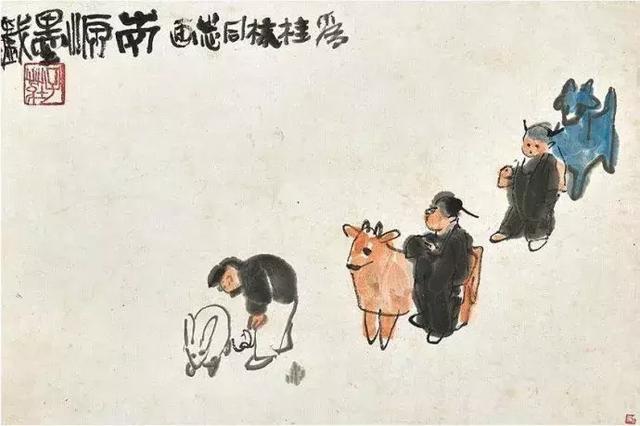 為桂林同志画南原墨戲